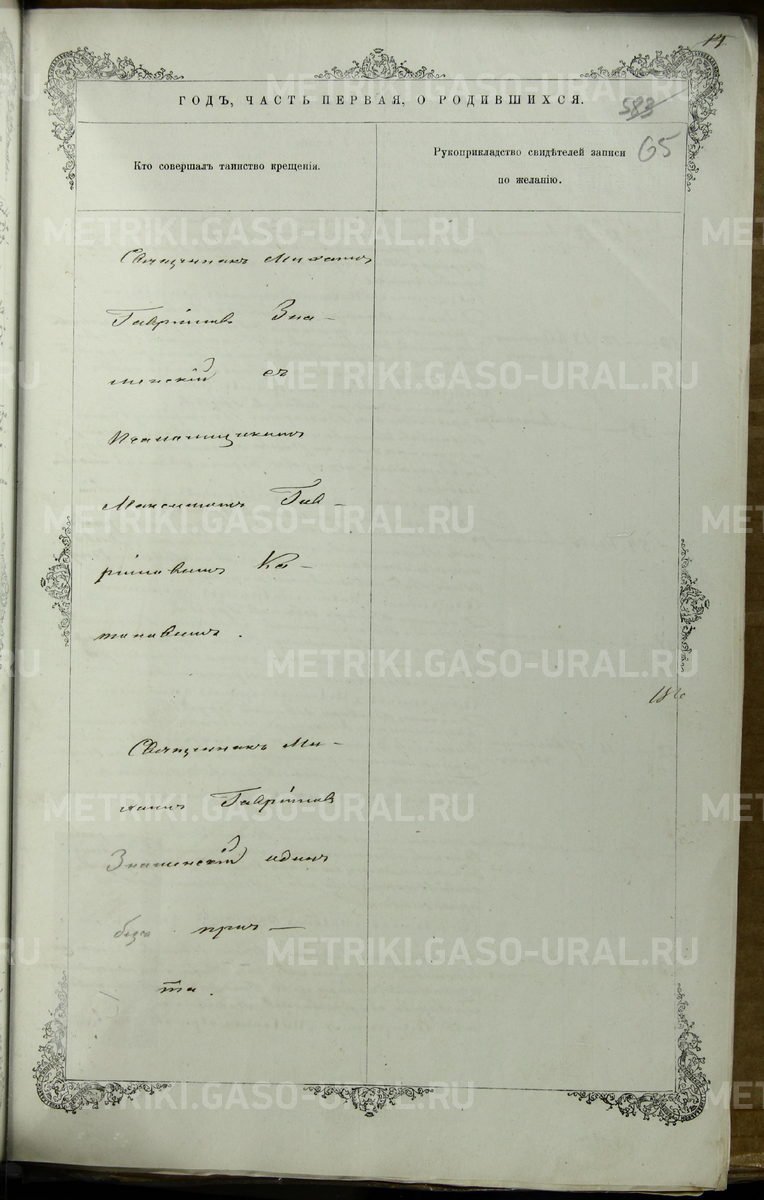 ГОДЪ, ЧАСТЬ ПЕРВАЯ, О РОДИВШИХСЯ.
583
65
Кто совершалъ таинство крещенія.
Рукоприкладство свидѣтелей записи
по желанію.
Священникъ Михаилъ
Гавріиловъ Зна-
менскій съ
Псаломщикомъ
Максимомъ Гав-
ріиловымъ Ка-
Священникъ Ми-
хаилъ Гавріиловъ
Знаменскій единъ
безъ прич-
та.
METRIKI.GASO-URAL.RU